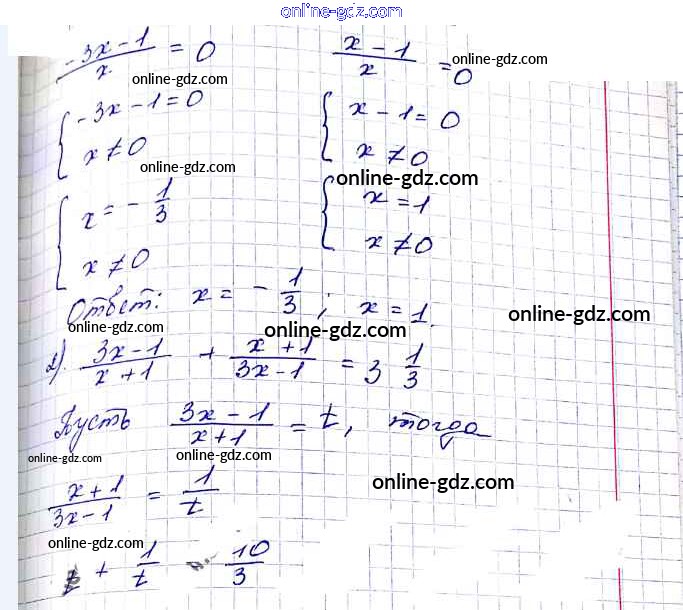 online-gdz.com
(-3x-1)/x = 0    (x-1)/x = 0
online-gdz.com    online-gdz.com
{ -3x-1=0    { x-1=0
{ x≠0    { x≠0
online-gdz.com    online-gdz.com
{ x = -1/3    { x = 1
{ x≠0    { x≠0
Ответ: x = -1/3; x = 1.
online-gdz.com    online-gdz.com    online-gdz.com
2). (3x-1)/(x+1) + (x+1)/(3x-1) = 3 1/3
Пусть (3x-1)/(x+1) = t, тогда
online-gdz.com    online-gdz.com    online-gdz.com
(x+1)/(3x-1) = 1/t
online-gdz.com
t + 1/t = 10/3